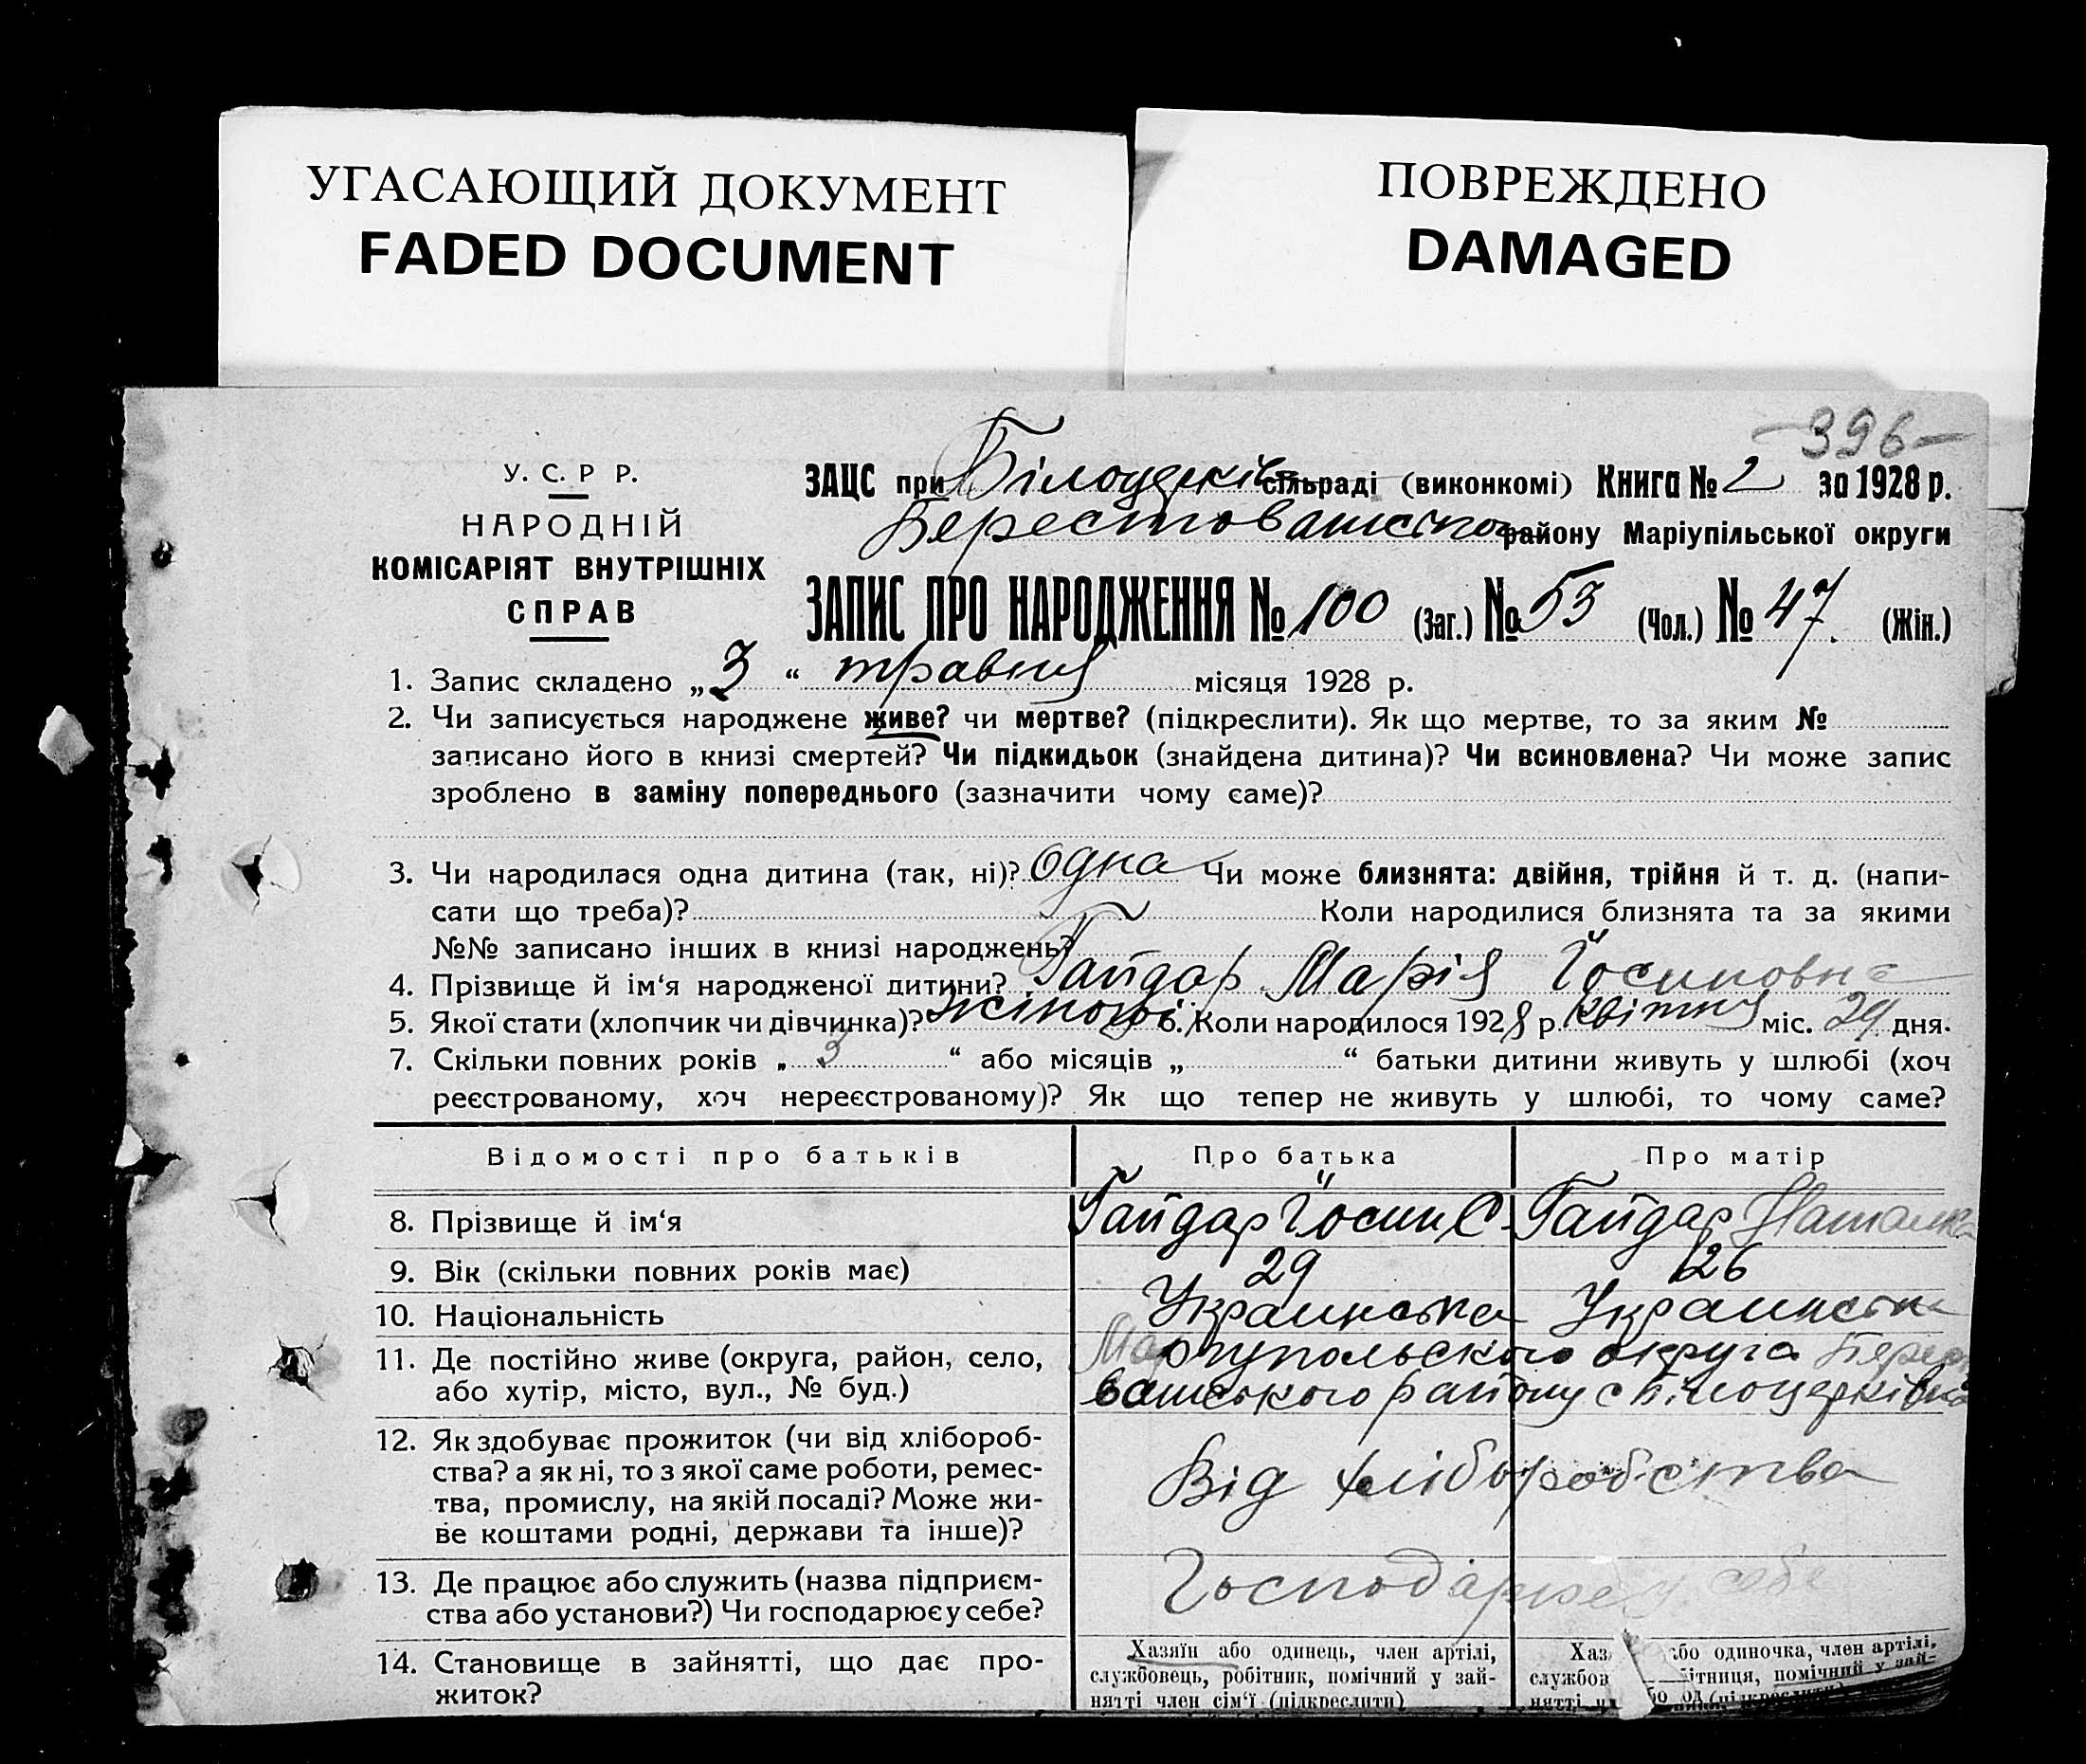 УГАСАЮЩИЙ ДОКУМЕНТ
FADED DOCUMENT
ПОВРЕЖДЕНО
DAMAGED
-396-
У. С. Р Р.
НАРОДНІЙ
КОМІСАРІЯТ ВНУТРІШНІХ
СПРАВ
ЗАЦС при Білоцерків сільраді (виконкомі) Книга № 2 за 1928 р.
Берестованського району Маріупільської округи
ЗАПИС ПРО НАРОДЖЕННЯ № 100 (Заг.) № 53 (Чол.) № 47. (Жін.)
1. Запис складено „3“ травня місяця 1928 р.
2. Чи записується народжене живе? чи мертве? (підкреслити). Як що мертве, то за яким №
записано його в книзі смертей? Чи підкидьок (знайдена дитина)? Чи всиновлена? Чи може запис
зроблено в заміну попереднього (зазначити чому саме)?
3. Чи народилася одна дитина (так, ні)? Одна Чи може близнята: двійня, трійня й т. д. (напи-
сати що треба)? Коли народилися близнята та за якими
№№ записано інших в книзі народжень?
4. Прізвище й ім‘я народженої дитини? Гайдар Марія Йосиповна
5. Якої стати (хлопчик чи дівчинка)? жіночої 6. Коли народилося 1928 р. квітня міс. 29 дня.
7. Скільки повних років „3“ або місяців „ “ батьки дитини живуть у шлюбі (хоч
реєстрованому, хоч нереєстрованому)? Як що тепер не живуть у шлюбі, то чому саме?
Відомості про батьків Про батька Про матір
8. Прізвище й ім‘я Гайдар Йосип С. Гайдар Наталка
9. Вік (скільки повних років має) 29 26
10. Національність Украинська Украинська
11. Де постійно живе (округа, район, село, Мариупольского округа Берест
або хутір, місто, вул., № буд.) ванського району с Білоцерківка
12. Як здобуває прожиток (чи від хлібороб-
ства? а як ні, то з якої саме роботи, ремес- Від хліборобства
тва, промислу, на якій посаді? Може жи-
ве коштами родні, держави та інше)?
13. Де працює або служить (назва підприєм- Господарює у себе
ства або установи?) Чи господарює у себе?
14. Становище в зайнятті, що дає про-
житок?
Хазяїн або одинець, член артілі,
службовець, робітник, помічний у зай-
нятті член сім‘ї (підкреслити)
Хаз бо одиночка, член артілі,
службов ітниця, помічний у зай-
нятті, (підкреслити)